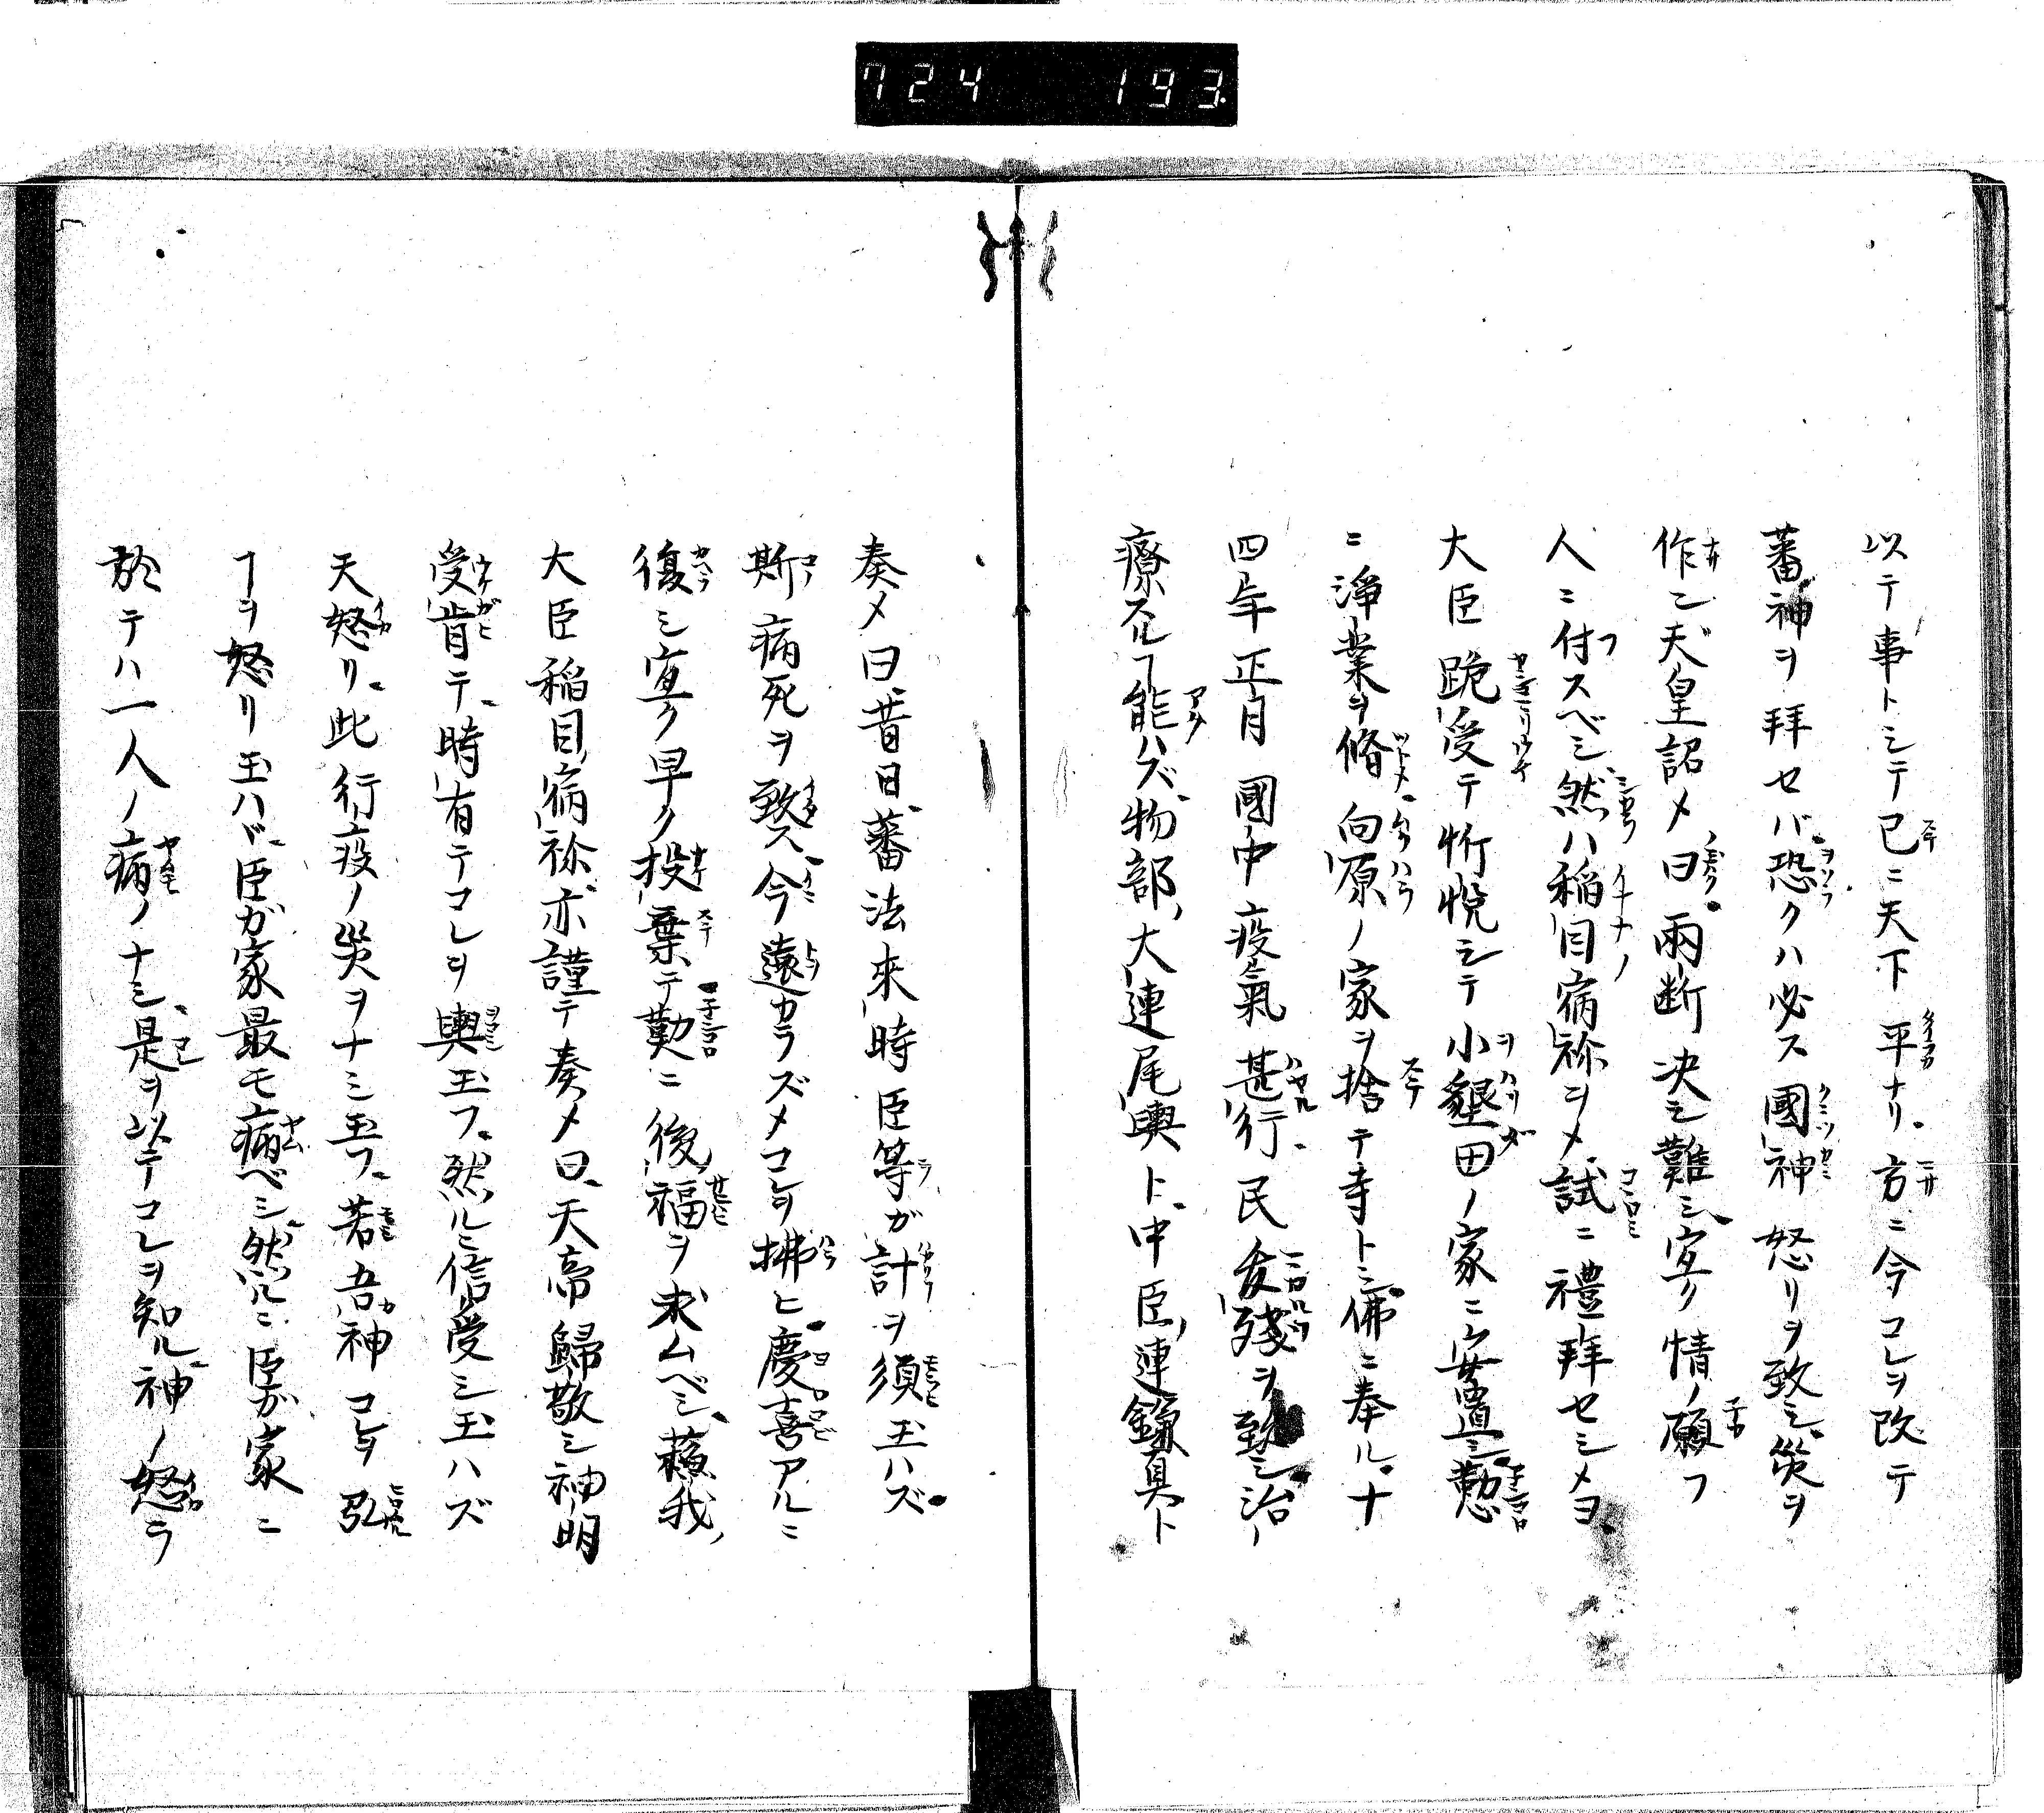 724 193.
以テ事トシテ已ニ天下平ナリ。方ニ今コレヲ改テ
蕃神ヲ拜セバ恐クハ必ス國神怒リヲ致シ災ヲ
作ン天皇詔メ曰。兩断決シ難シ寔ク情ノ願フ
人ニ付スベシ然ハ稲目宿祢ヲメ試ニ禮拜セシメヨ
大臣跪受テ忻悦シテ小墾田ノ家ニ安置シ懃
ニ淨業ヲ脩向原ノ家ヲ捨テ寺トシ佛ニ奉ル。十
四年正月國中疫氣甚行。民夭残ヲ致シ治
療スルヿ能ハズ物部ノ大連尾輿ト。中臣ノ連鎌具ト
奏メ曰昔日蕃法來時臣等ガ計ヲ須玉ハズ。
斯病死ヲ致ス今遠カラズメコレヲ拂ヒ慶喜アルニ
復シ寔ク早ク投棄テ勤ニ後福ヲ求ムベシ蘇我ノ
大臣稲目宿祢亦謹テ奏メ曰、天帝歸敬シ神明
受肯テ時有テコレヲ輿玉フ。然ルニ信受シ玉ハズ
天怒リ此行疫ノ災ヲナシ玉フ若吾神コレヲ弘
ヿヲ怒リ玉ハヾ臣ガ家最モ病ベシ然ルニ臣ガ家ニ
於テハ一人ノ病ノナシ是ヲ以テコレヲ知ル神ノ怒ラ